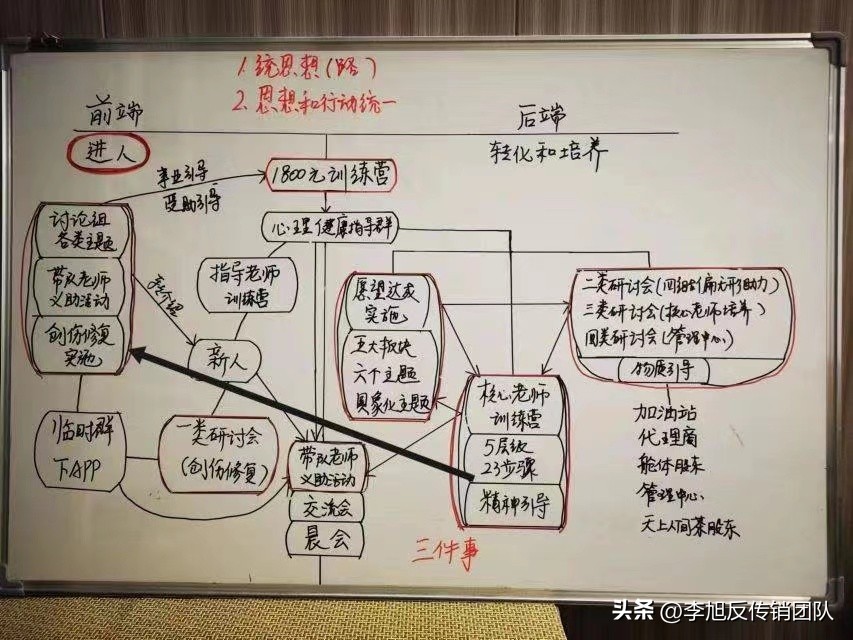 1. 统思想(路)
2. 思想和行动统一
前端
后端
进人
转化和培养
事业引导
受助引导
1800元训练营
心理健康指导群
讨论组
各类主题
带队老师
义助活动
创伤修复
实施
亲介绍
指导老师
训练营
新人
临时群
下APP
一类研讨会
(创伤修复)
带队老师
义助活动
交流会
晨会
愿望达成
实施
五大板块
六个主题
具象化主题
核心老师
训练营
5层级
23步骤
精神引导
三件事
二类研讨会(四细纠偏无形助力)
三类研讨会(核心老师培养)
四类研讨会(管理中心)
物质引导
加油站
代理商
舱体股东
管理中心
天上人间菜股东
头条 @李旭反传销团队